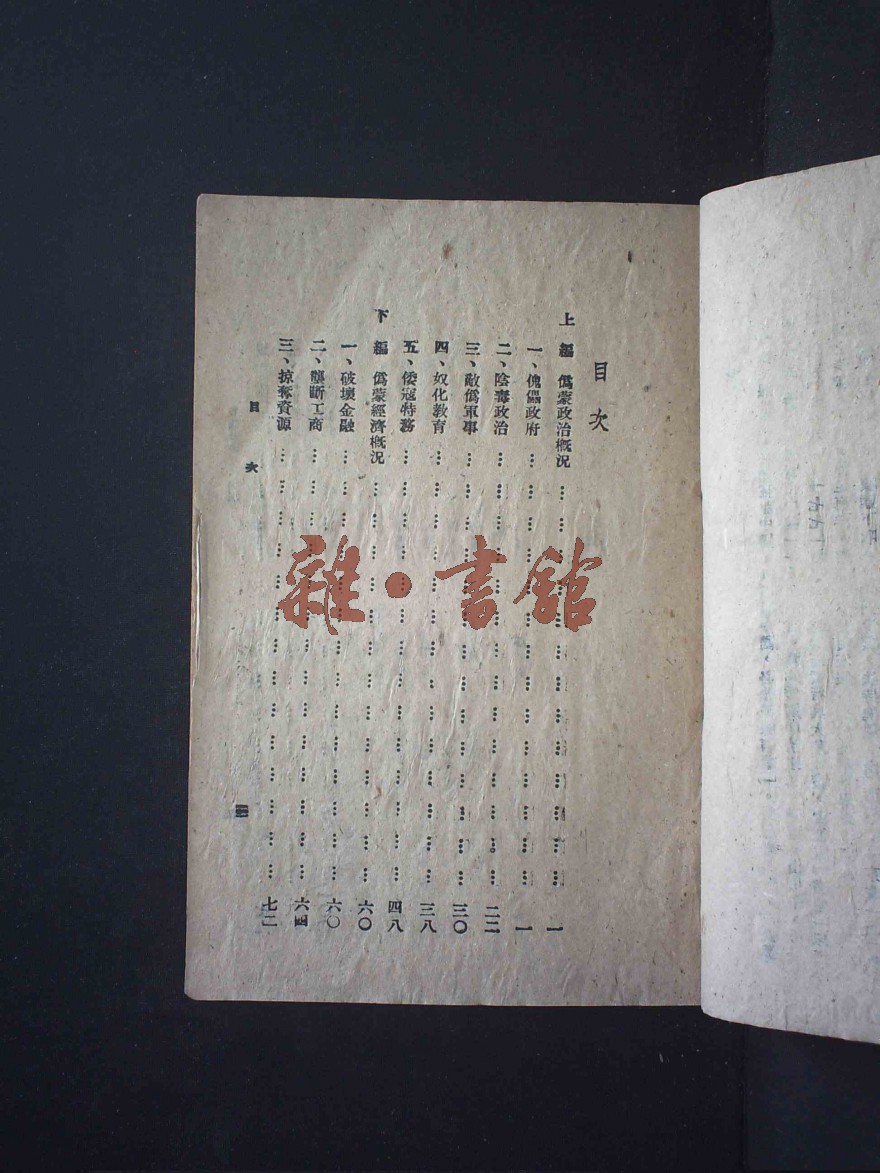 目次
上編 僞蒙政治概況………一
一、傀儡政府………一
二、陰毒政治………二二
三、敵僞軍事………三〇
四、奴化教育………三八
五、倭寇特務………四八
下編 僞蒙經濟概況………六〇
一、破壞金融………六〇
二、壟斷工商………六四
三、掠奪資源………七二
目次
雜·書館